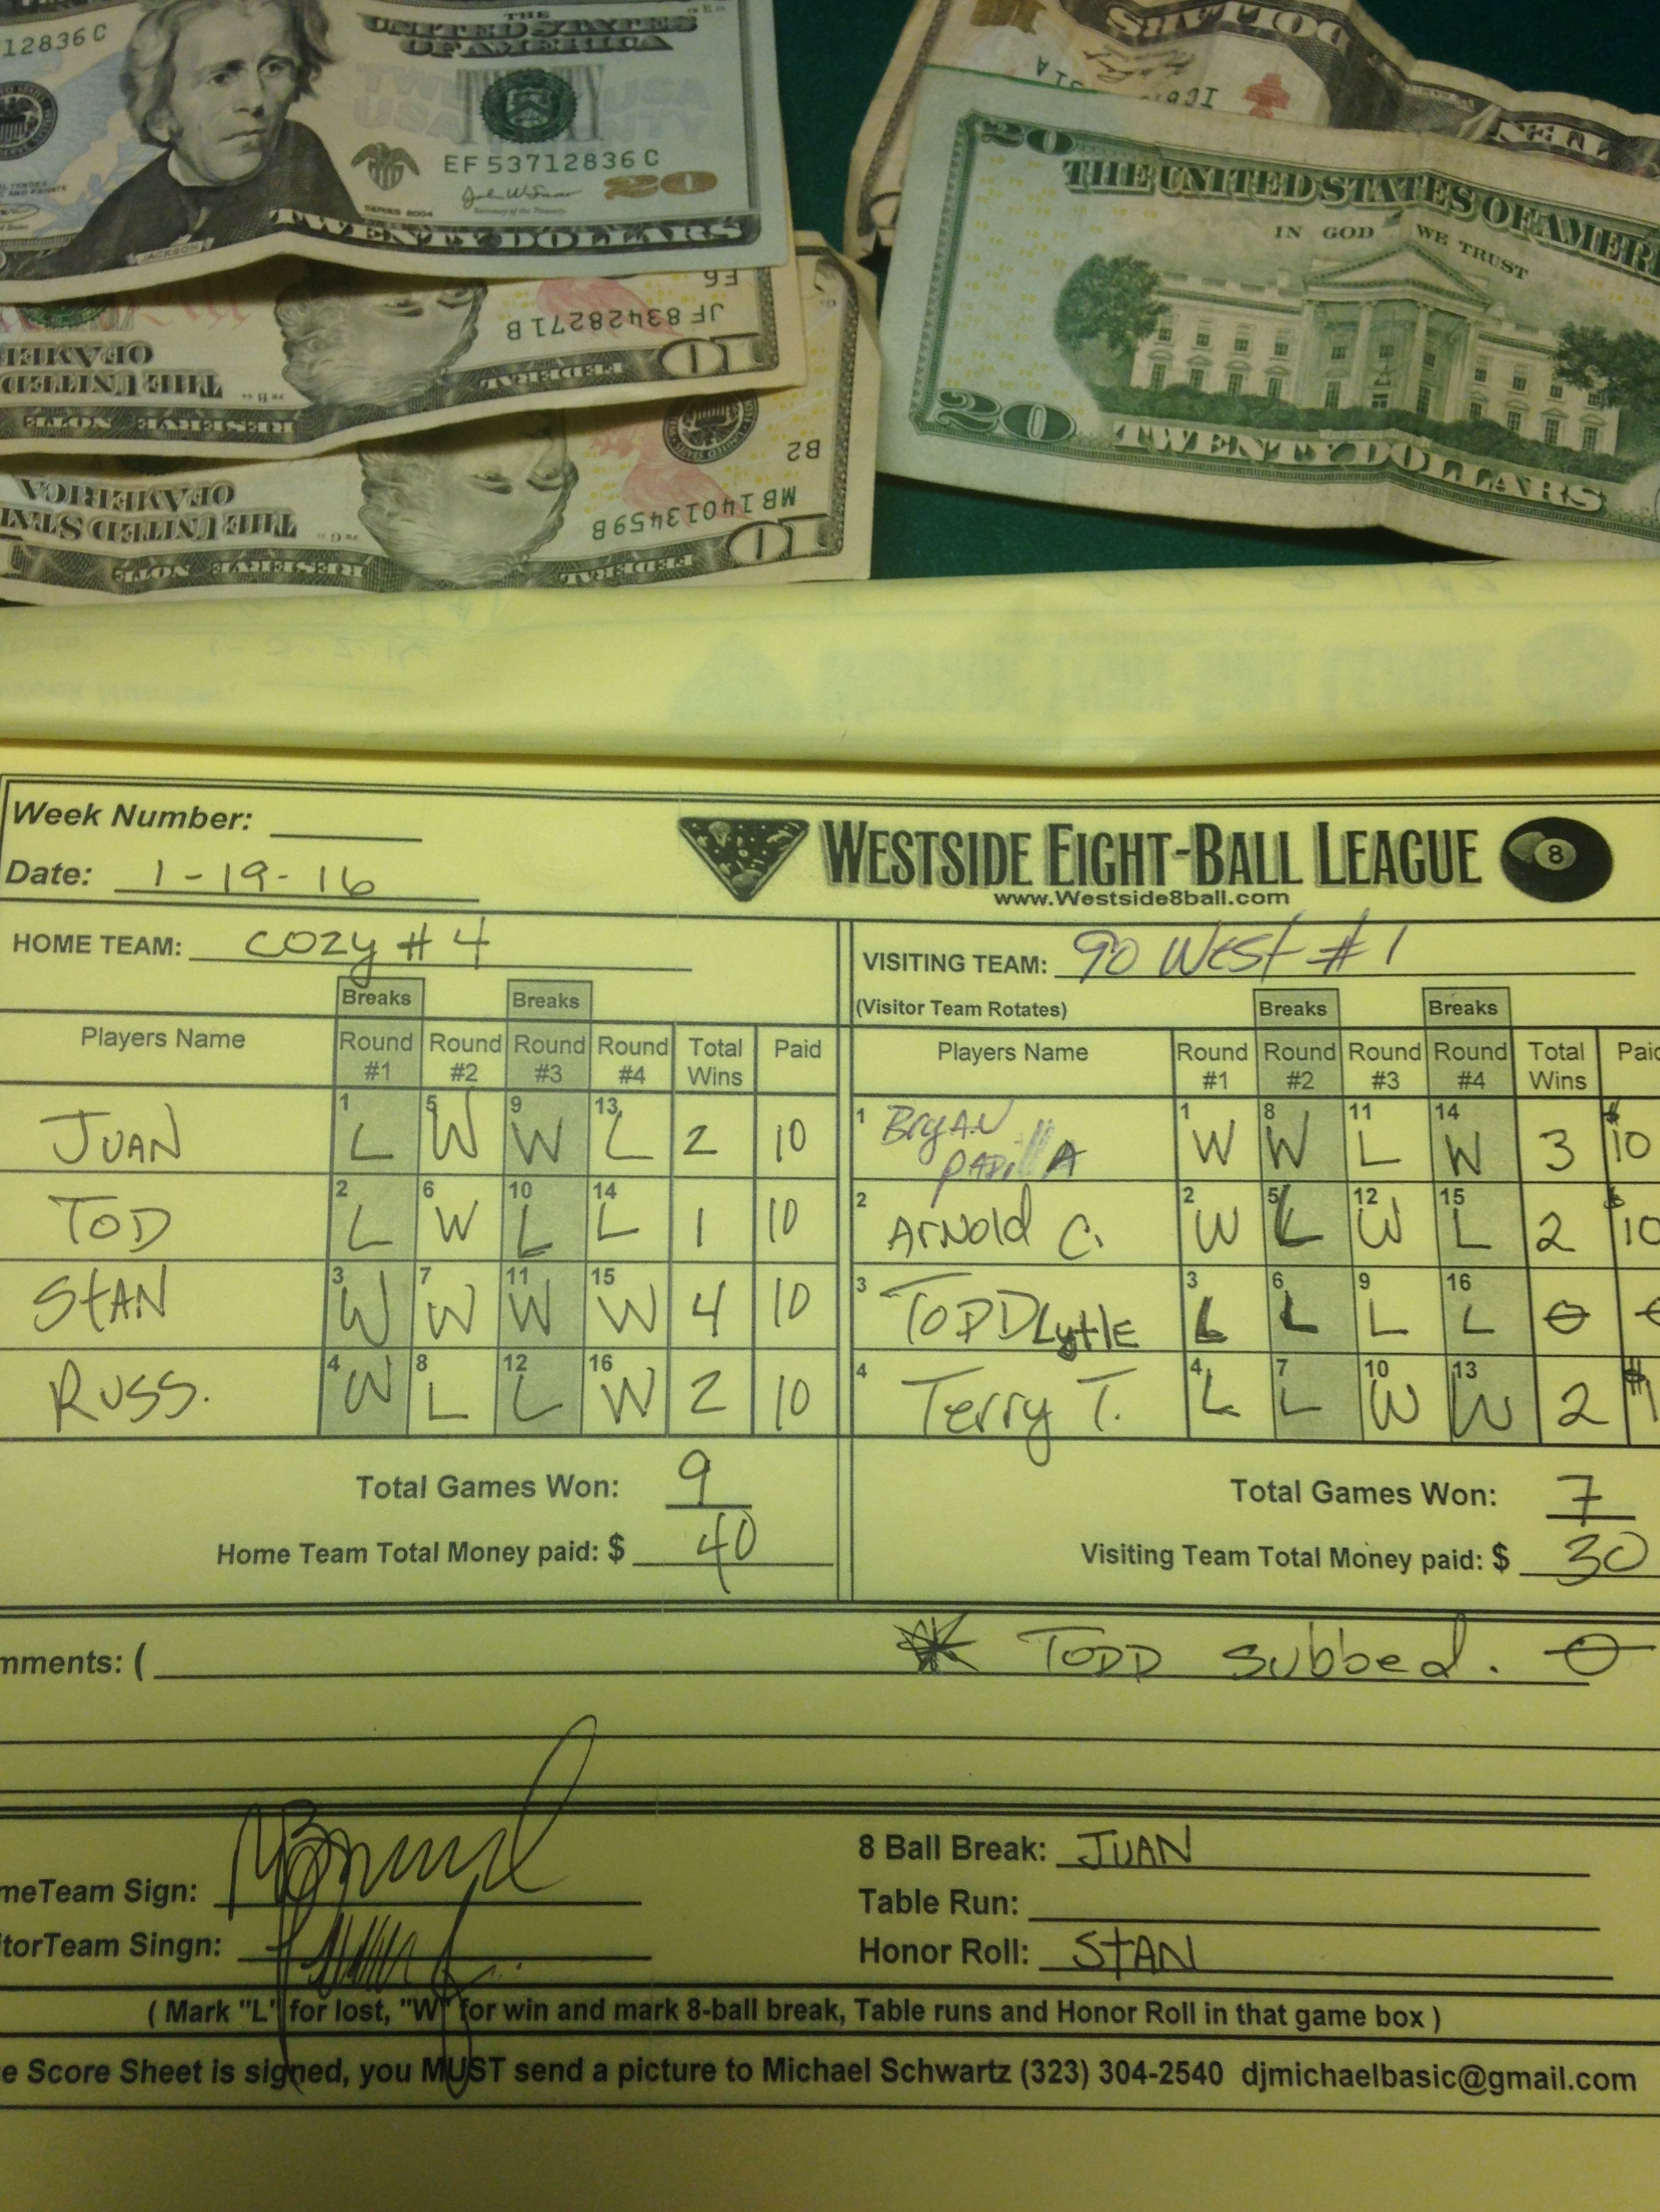 12836 C
THE
UNITED STATES
OF AMERICA
TWENTY
USA
EF 53712836 C
SERIES 2004
Secretary of the Treasury.
20
JACKSON
TWENTY DOLLARS
E6
JF 83428271 B
10
THE UNITED
OF AMERICA
FEDERAL
RESERVE NOTE
B2
MB 14013459 B
10
THE UNITED STAT
OF AMERICA
FEDERAL RESERVE NOTE
DOLLARS
20
THE UNITED STATES OF AMER
IN GOD WE TRUST
20
TWENTY DOLLARS
Week Number:
Date: 1-19-16
WESTSIDE EIGHT-BALL LEAGUE 8
www.Westside8ball.com
HOME TEAM: COZY #4
VISITING TEAM: 90 WEST #1
(Visitor Team Rotates)
Breaks Breaks Breaks Breaks
Players Name Round #1 Round #2 Round #3 Round #4 Total Wins Paid
Players Name Round #1 Round #2 Round #3 Round #4 Total Wins Paid
JUAN 1 L 5 W 9 W 13 L 2 10
1 Bryan PADILLA 1 W 8 W 11 L 14 W 3 $10
TOD 2 L 6 W 10 L 14 L 1 10
2 Arnold C. 2 W 5 L 12 W 15 L 2 $10
STAN 3 W 7 W 11 W 15 W 4 10
3 TODD Lytle 3 L 6 L 9 L 16 L 0
RUSS. 4 W 8 L 12 L 16 W 2 10
4 Terry T. 4 L 7 L 10 W 13 W 2 $1
Total Games Won: 9
Total Games Won: 7
Home Team Total Money paid: $ 40
Visiting Team Total Money paid: $ 30
mments: (
* TODD subbed. 0
meTeam Sign:
8 Ball Break: JUAN
Table Run:
itorTeam Singn:
Honor Roll: STAN
( Mark "L" for lost, "W" for win and mark 8-ball break, Table runs and Honor Roll in that game box )
e Score Sheet is signed, you MUST send a picture to Michael Schwartz (323) 304-2540 djmichaelbasic@gmail.com